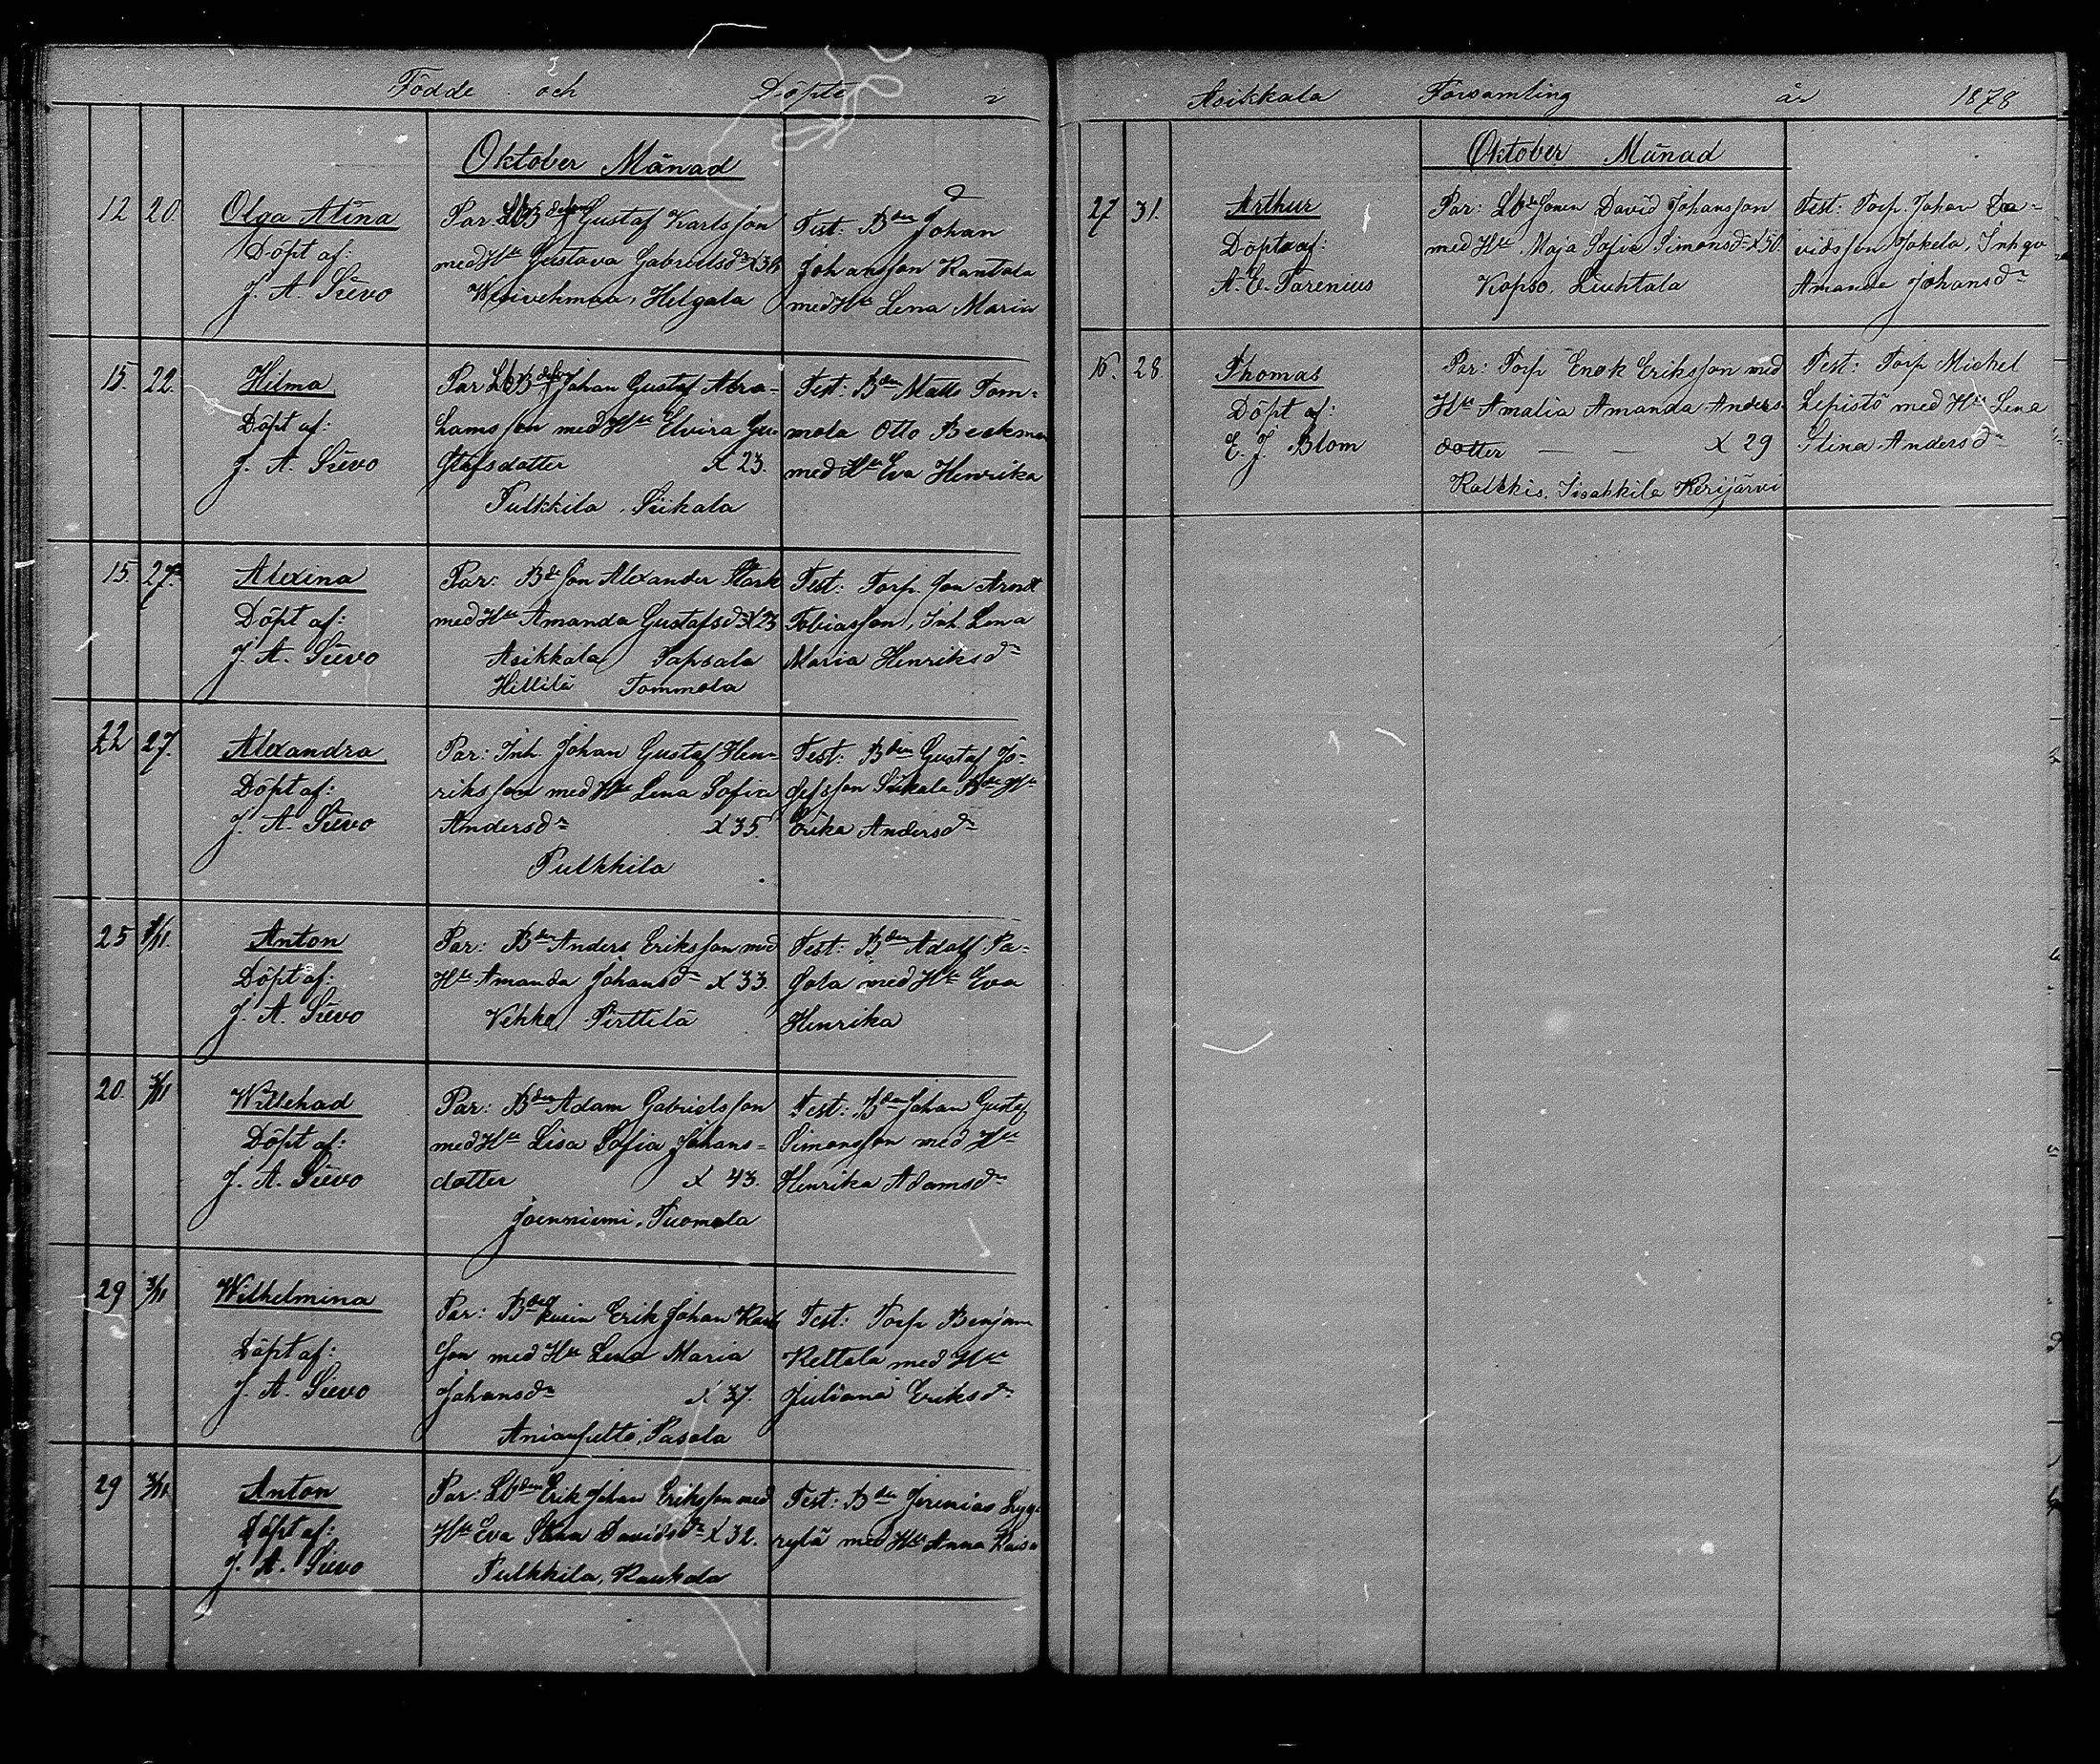 Födde och Döpte i
Oktober Månad
12 20. Olga Alina
Döpt af:
J. A. Sievo
Par: Gustaf Karlsson
med Hu Gustava Gabrielsdr X 36
Wesivehmaa, Helgala
Test: Bden Johan
Johansson Rantala
med Hu Lena Maria
15. 22. Hilma
Döpt af:
J. A. Sievo
Par: Johan Gustaf Abra-
hamsson med Hu Elvira Gu-
stafsdotter X 23.
Pulkkila, Siikala
Test: Bden Matts Tom-
mola Otto Beckman
med Hu Eva Henrika
15. 27. Alexina
Döpt af:
J. A. Sievo
Par: Bde Son Alexander Stark
med Hu Amanda Gustafsdr X 23
Asikkala Sapsala
Hillilä Tommola
Test: Torp. Son Arndt
Tobiasson, Inh. Lena
Maria Henriksdr
22 27. Alexandra
Döpt af:
J. A. Sievo
Par: Inh Johan Gustaf Hen-
riksson med Hu Lena Sofia
Andersdr X 35.
Pulkkila
Test: Bden Gustaf Jo-
sefsson Siikala Bde Hu
Erika Andersdr
25 Anton
Döpt af:
J. A. Sievo
Par: Bden Anders Eriksson med
Hu Amanda Johansdr X 33.
Vehka Pirttilä
Test: Bden Adolf Pa-
sola med Hu Eva
Henrika
20. 3/11 Willehad
Döpt af:
J. A. Sievo
Par: Bden Adam Gabrielsson
med Hu Lisa Sofia Johans-
dotter X 43.
Joenniemi, Tuomala
Test: Bden Johan Gustaf
Simonsson med Hu
Henrika Adamsdr
29 3/11 Wilhelmina
Döpt af:
J. A. Sievo
Par: Erik Johan Karls
son med Hu Lena Maria
Johansdr X 37.
Anianpelto, Pasola
Test: Torp Benjam
Kettala med Hu
Juliana Eriksdr
29 3/11 Anton
Döpt af:
J. A. Sievo
Par: Lbden Erik Johan Eriksson med
Hu Eva Stina Davidsdr X 32.
Pulkkila, Kaukola
Test: Bden Jeremias
med Hu Anna Kaisa
Asikkala Församling år 1878
Oktober Månad
27 31. Arthur
Döpt af:
A. E. Farenius
Par: Lbde Sonen David Johansson
med Hu Maja Sofia Simonsdr X 30.
Kopso, Liuhtala
Test: Torp. Johan Da-
vidsson Jokela, Inhqv
Amanda Johansdr
16. 28. Thomas
Döpt af:
E. J. Blom
Par: Torp Enok Eriksson med
Hu Amalia Amanda Anders-
dotter — — X 29
Kalkkis, Iisakkila Kerijärvi
Test: Torp Mickel
Lepistö med Hu Lena
Stina Andersdr